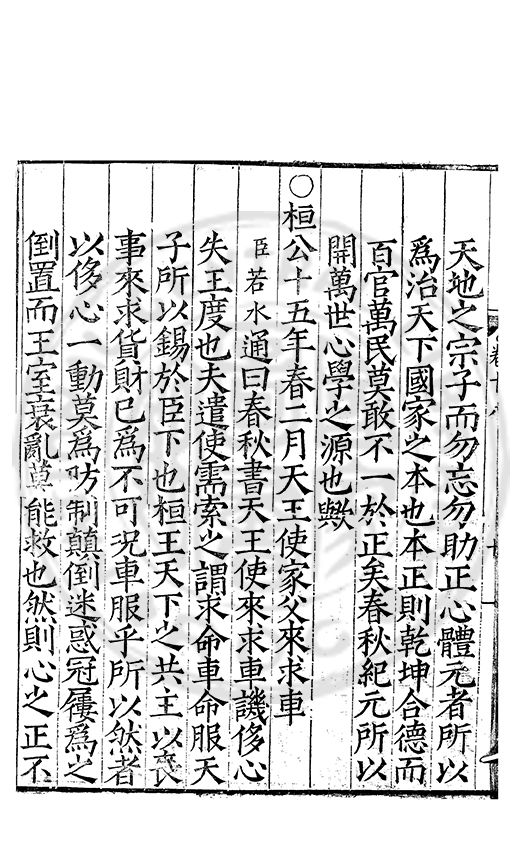 天地之宗子而勿忘勿助正心體元者所以
爲治天下國家之本也本正則乾坤合德而
百官萬民莫敢不一於正矣春秋紀元所以
開萬世心學之源也歟
○桓公十五年春二月天王使家父來求車
臣若水通曰春秋書天王使來求車譏侈心
失王度也夫遣使需索之謂求命車命服天
子所以錫於臣下也桓王天下之共主以喪
事來求貨財已爲不可况車服乎所以然者
以侈心一動莫爲防制顛倒迷惑冠屨爲之
倒置而王室衰亂莫能救也然則心之正不